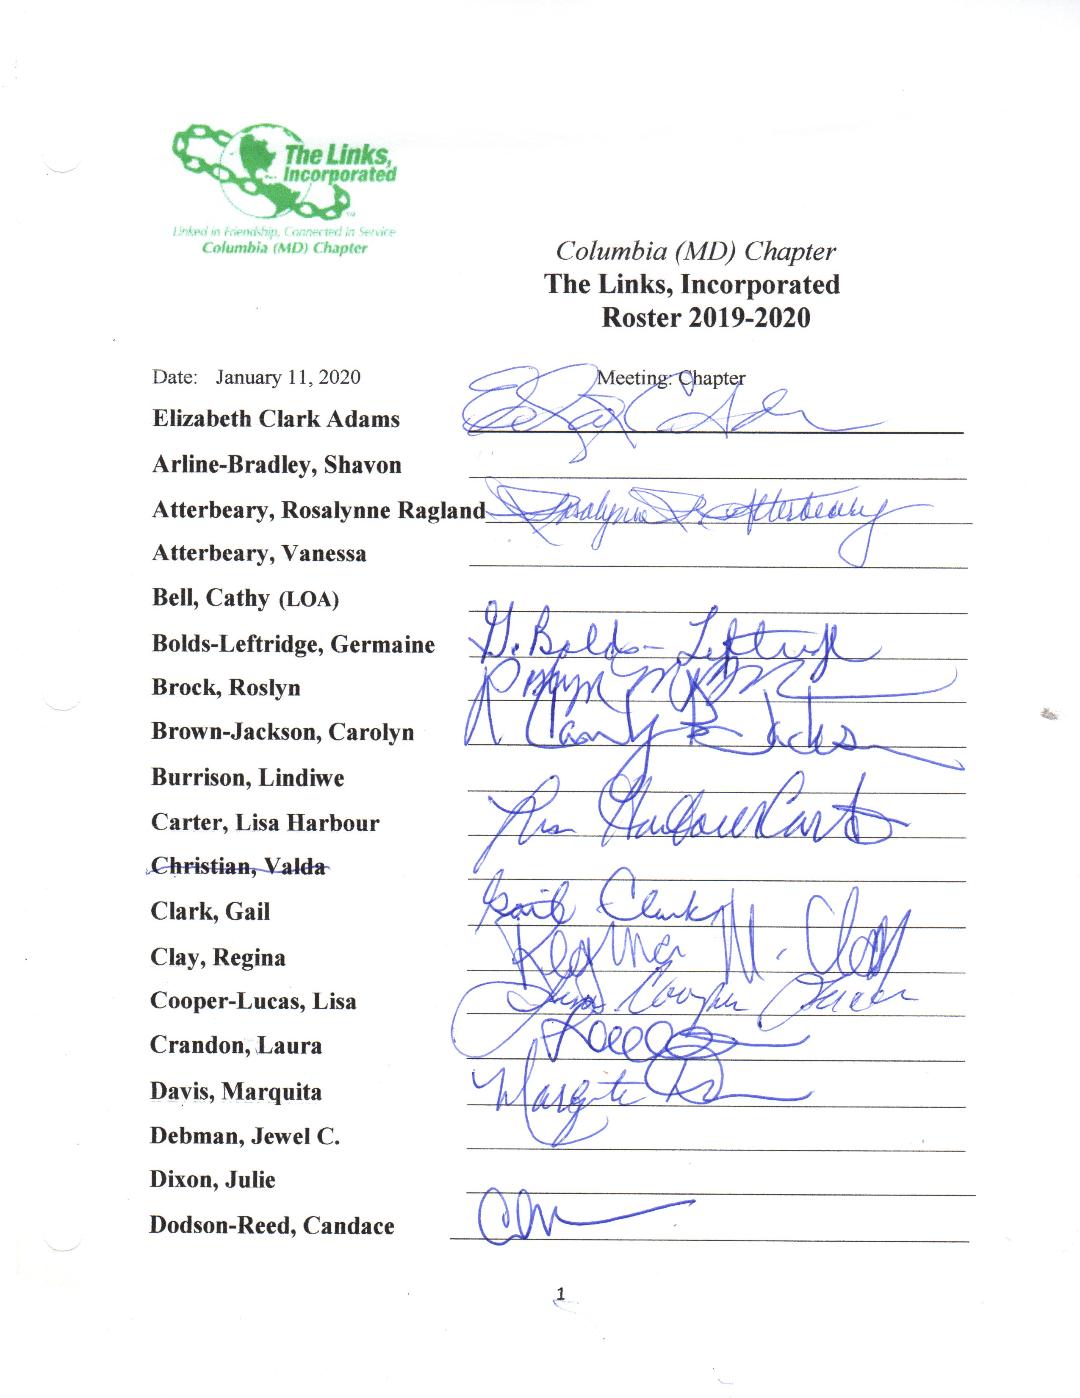 The Links,
Incorporated
Linked in Friendship, Connected in Service
Columbia (MD) Chapter
Columbia (MD) Chapter
The Links, Incorporated
Roster 2019-2020
Date: January 11, 2020 Meeting: Chapter
Elizabeth Clark Adams
Arline-Bradley, Shavon
Atterbeary, Rosalynne Ragland Rosalynne R. Atterbeary
Atterbeary, Vanessa
Bell, Cathy (LOA)
Bolds-Leftridge, Germaine G. Bolds-Leftridge
Brock, Roslyn
Brown-Jackson, Carolyn
Burrison, Lindiwe
Carter, Lisa Harbour Lisa Harbour Carter
Christian, Valda
Clark, Gail Gail Clark
Clay, Regina Regina M. Clay
Cooper-Lucas, Lisa Lisa Cooper Lucas
Crandon, Laura
Davis, Marquita
Debman, Jewel C.
Dixon, Julie
Dodson-Reed, Candace
1